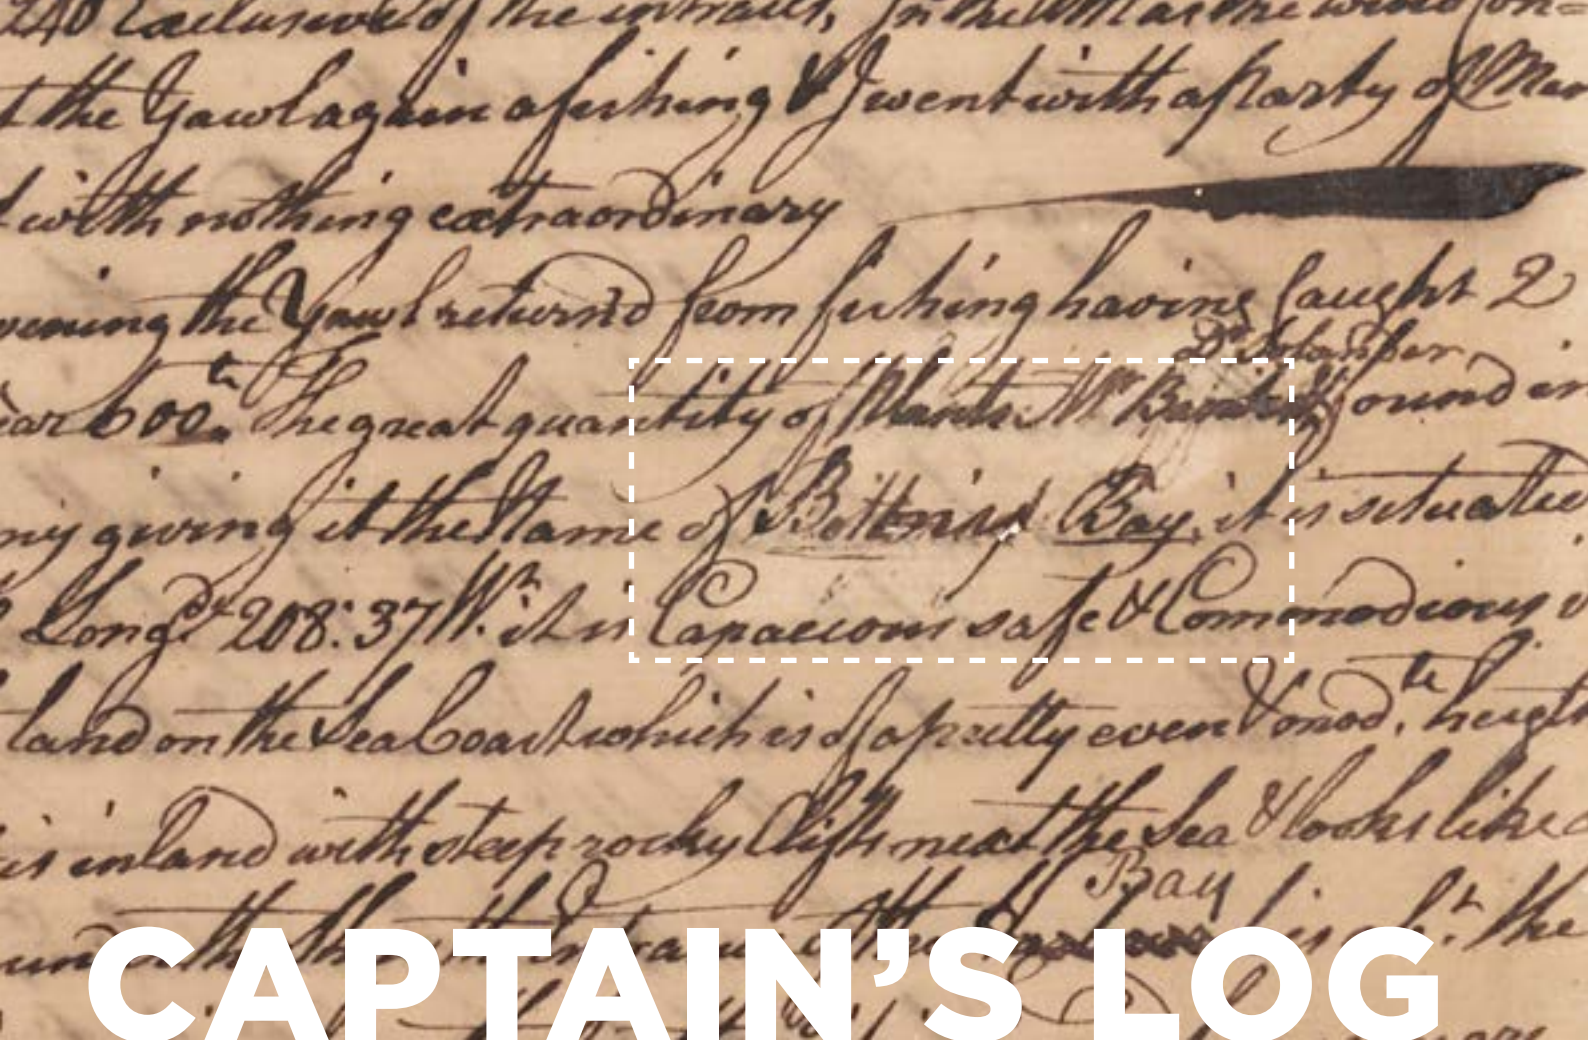 240 Exclusive of the intrails, In the AM as the wind con=
the Yawl again a fishing & I went with a party of Men
with nothing extraordinary
evening the Yawl return'd from fishing having Caught 2
Dr Solander
near 600th The great quantity of Plants Mr Banks & found in
my giving it the Name of Bottany Bay, it is situated
Longde 208:37 Wt it is Capacious safe & Commodious
land on the Sea Coast which is of a pretty even & modte height
is inland with steep rocky Clifts next the Sea & looks like
Bay
the the is bt the
CAPTAIN'S LOG